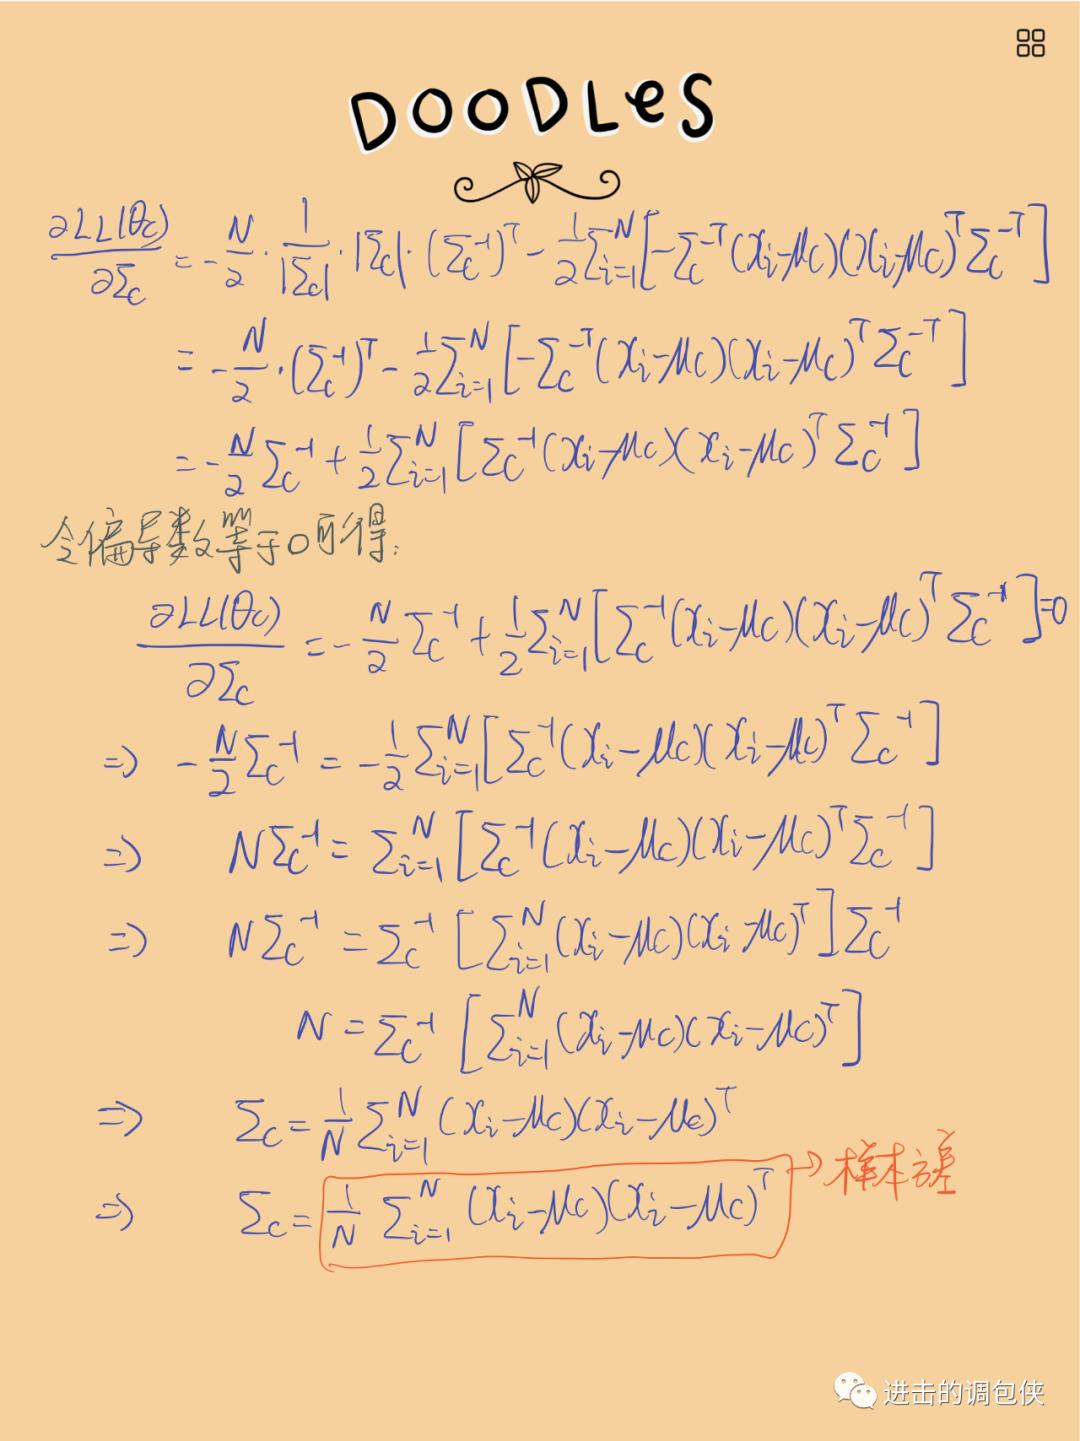 DOODLES
∂LL(θc)/∂Σc = -N/2 · 1/|Σc| · |Σc| · (Σc^-1)^T - 1/2 Σ_{i=1}^N [-Σc^-T (xi-μc)(xi-μc)^T Σc^-T]
= -N/2 · (Σc^-1)^T - 1/2 Σ_{i=1}^N [-Σc^-T (xi-μc)(xi-μc)^T Σc^-T]
= -N/2 Σc^-1 + 1/2 Σ_{i=1}^N [Σc^-1 (xi-μc)(xi-μc)^T Σc^-1]
令偏导数等于0可得:
∂LL(θc)/∂Σc = -N/2 Σc^-1 + 1/2 Σ_{i=1}^N [Σc^-1 (xi-μc)(xi-μc)^T Σc^-1] = 0
=> -N/2 Σc^-1 = -1/2 Σ_{i=1}^N [Σc^-1 (xi-μc)(xi-μc)^T Σc^-1]
=> NΣc^-1 = Σ_{i=1}^N [Σc^-1 (xi-μc)(xi-μc)^T Σc^-1]
=> NΣc^-1 = Σc^-1 [Σ_{i=1}^N (xi-μc)(xi-μc)^T] Σc^-1
N = Σc^-1 [Σ_{i=1}^N (xi-μc)(xi-μc)^T]
=> Σc = 1/N Σ_{i=1}^N (xi-μc)(xi-μc)^T
=> Σc = 1/N Σ_{i=1}^N (xi-μc)(xi-μc)^T → 样本方差
进击的调包侠